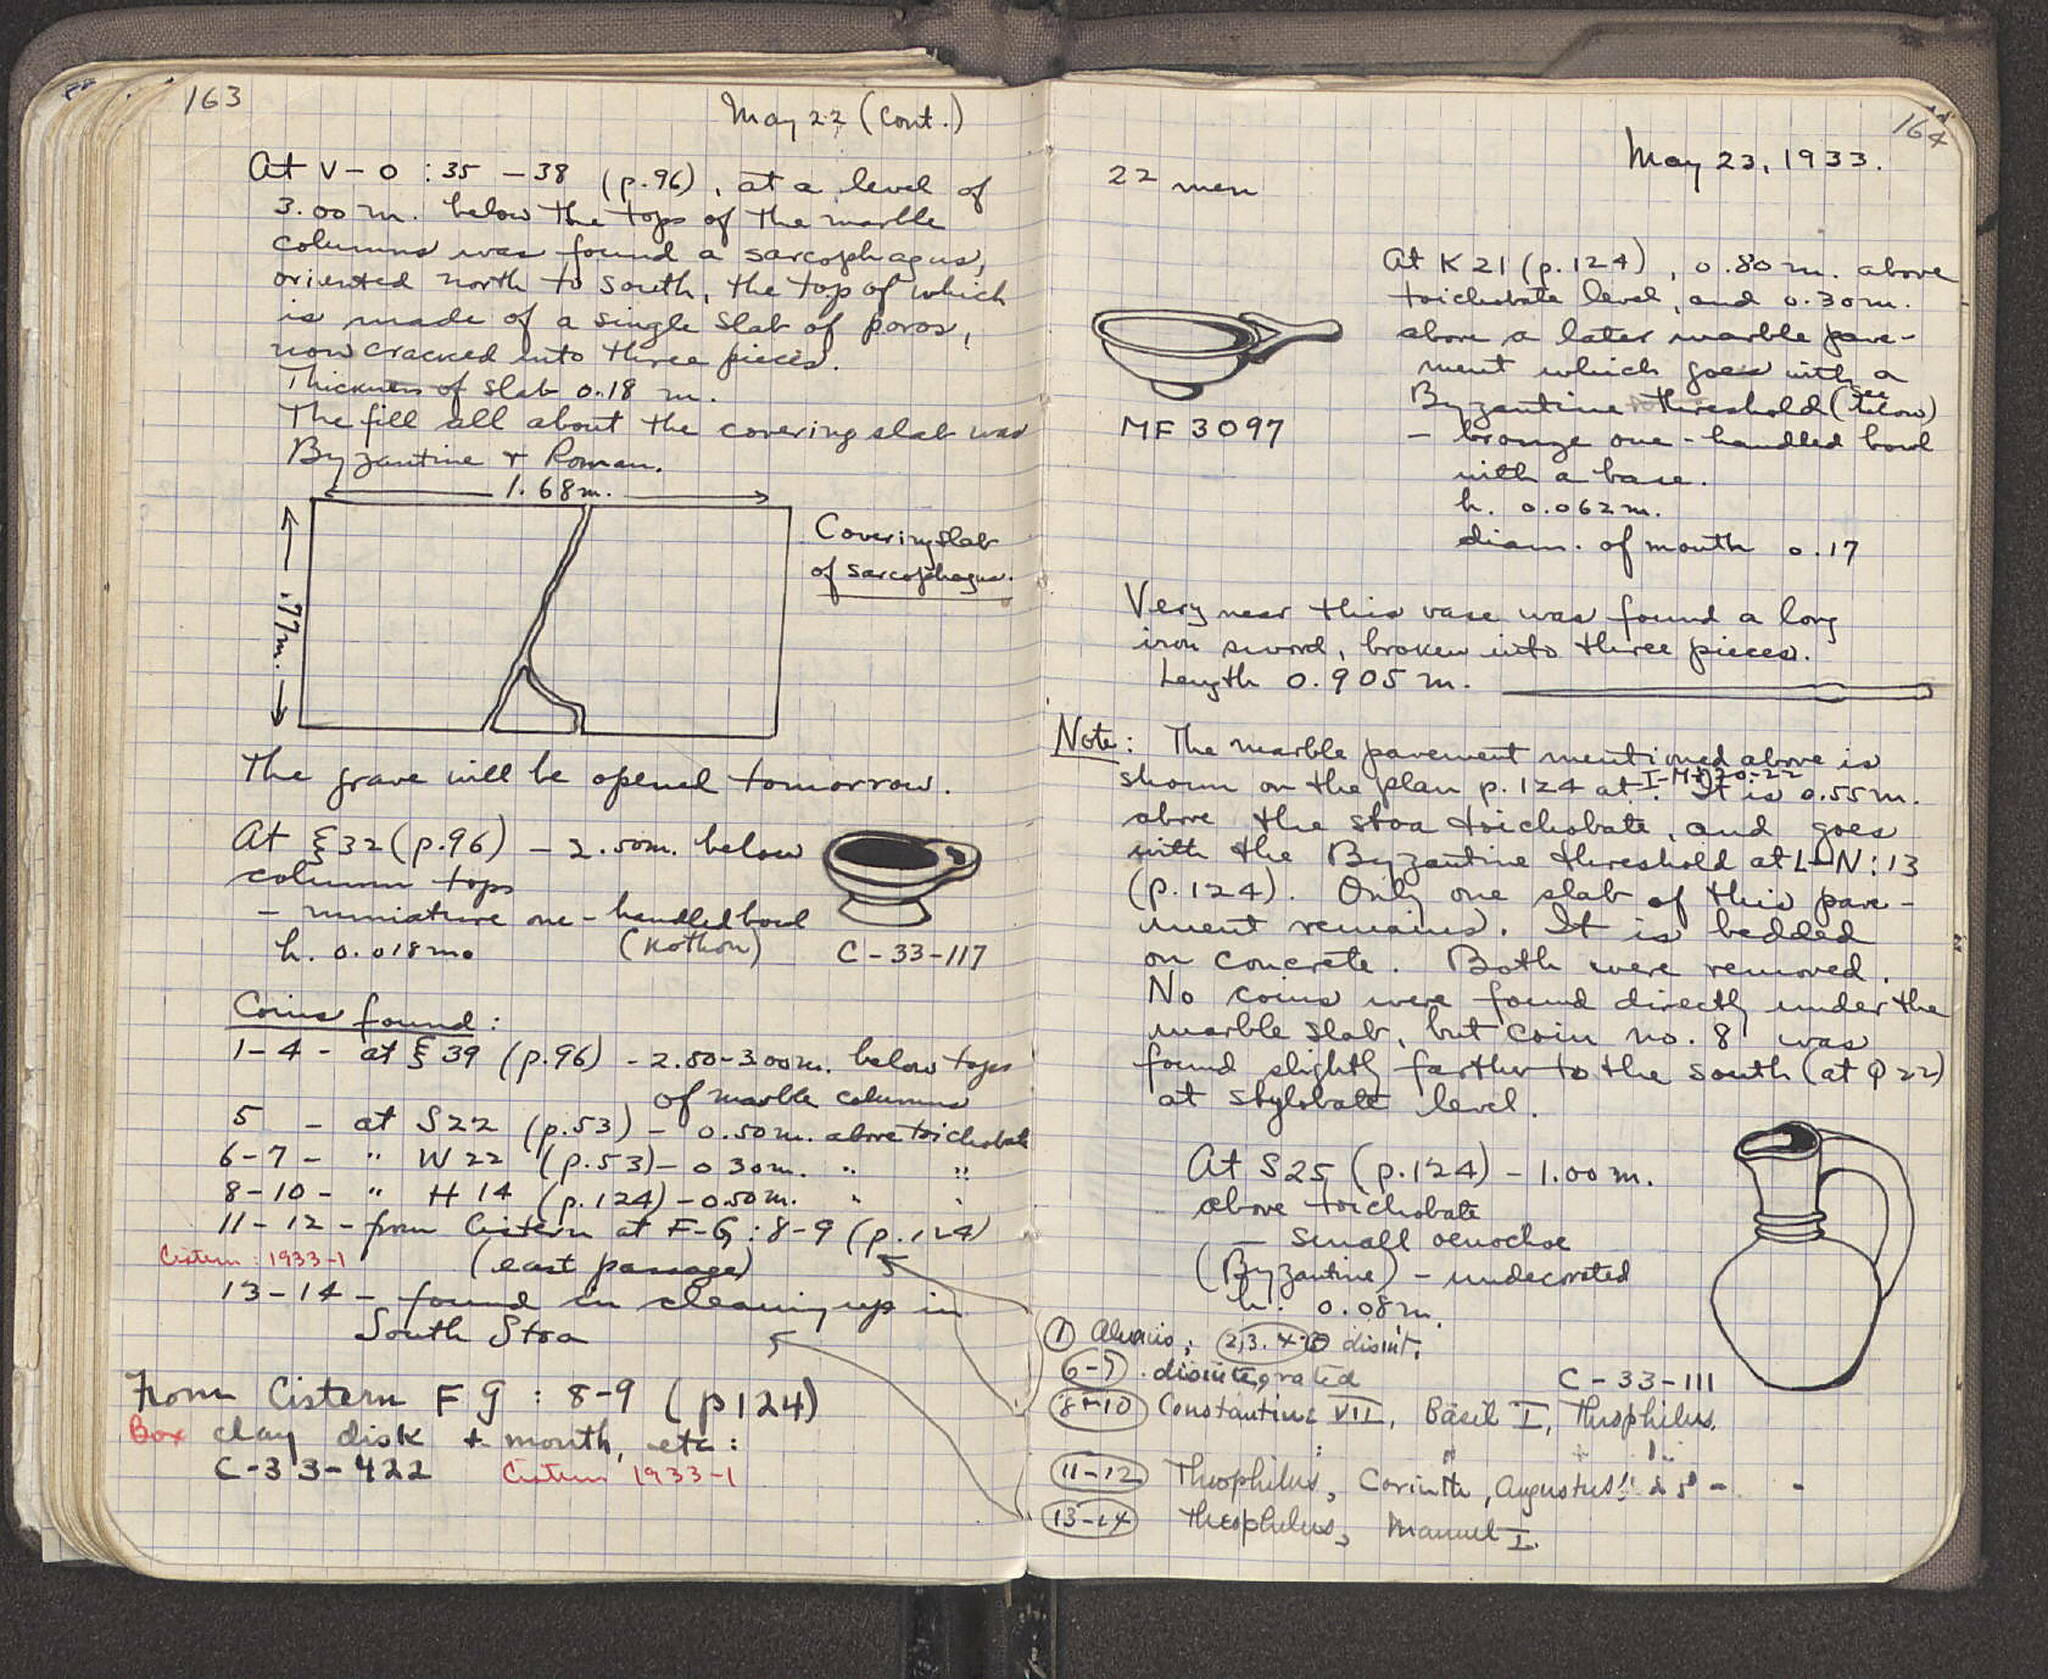 163
May 22 (Cont.)
At V-O : 35 - 38 (p.96), at a level of
3.00 m. below the tops of the marble
columns was found a sarcophagus,
oriented north to south, the top of which
is made of a single slab of poros,
now cracked into three pieces.
Thickness of slab 0.18 m.
The fill all about the covering slab was
Byzantine + Roman.
1.68 m.
.77 m.
Covering slab
of sarcophagus.
The grave will be opened tomorrow.
At ξ 32 (p.96) - 2.50m. below
column tops
- miniature one-handled bowl
h. 0.018 m.
(Kothon)
C-33-117
Coins found:
1-4 - at ξ 39 (p.96) - 2.50-3.00m. below tops
of marble columns
5 - at S22 (p.53) - 0.50m. above toichobate
6-7 - " W 22 (p.53) - 0.30m. " "
8-10 - " H 14 (p.124) - 0.50m. " "
11-12 - from Cistern at F-G : 8-9 (p.124)
Cistern: 1933-1
(east passage)
13-14 - found in cleaning up in
South Stoa
From Cistern F G : 8-9 (p 124)
Box clay disk + mouth, etc:
C-33-422 Cistern 1933-1
164
May 23, 1933.
22 men
At K 21 (p.124), 0.80 m. above
toichobate level, and 0.30m.
above a later marble pave-
ment which goes with a
Byzantine threshold (see below)
- bronze one-handled bowl
with a base.
h. 0.062 m.
diam. of mouth 0.17
MF 3097
Very near this vase was found a long
iron sword, broken into three pieces.
Length 0.905 m.
Note: The marble pavement mentioned above is
shown on the plan p. 124 at I-M:20-22. It is 0.55m.
above the stoa toichobate, and goes
with the Byzantine threshold at L-N:13
(p.124). Only one slab of this pave-
ment remains. It is bedded
on concrete. Both were removed.
No coins were found directly under the
marble slab, but coin no. 8 was
found slightly farther to the south (at φ 22)
at stylobate level.
At S25 (p.124) - 1.00 m.
above toichobate
- small oenochoe
(Byzantine) - undecorated
h. 0.08m.
① 2,3.4 disint.
6-7 . disintegrated
C-33-111
8-10 Constantine VII, Basil I, Theophilus.
11-12 Theophilus, Corinth, Augustus
13-14 Theophilus, Manuel I.